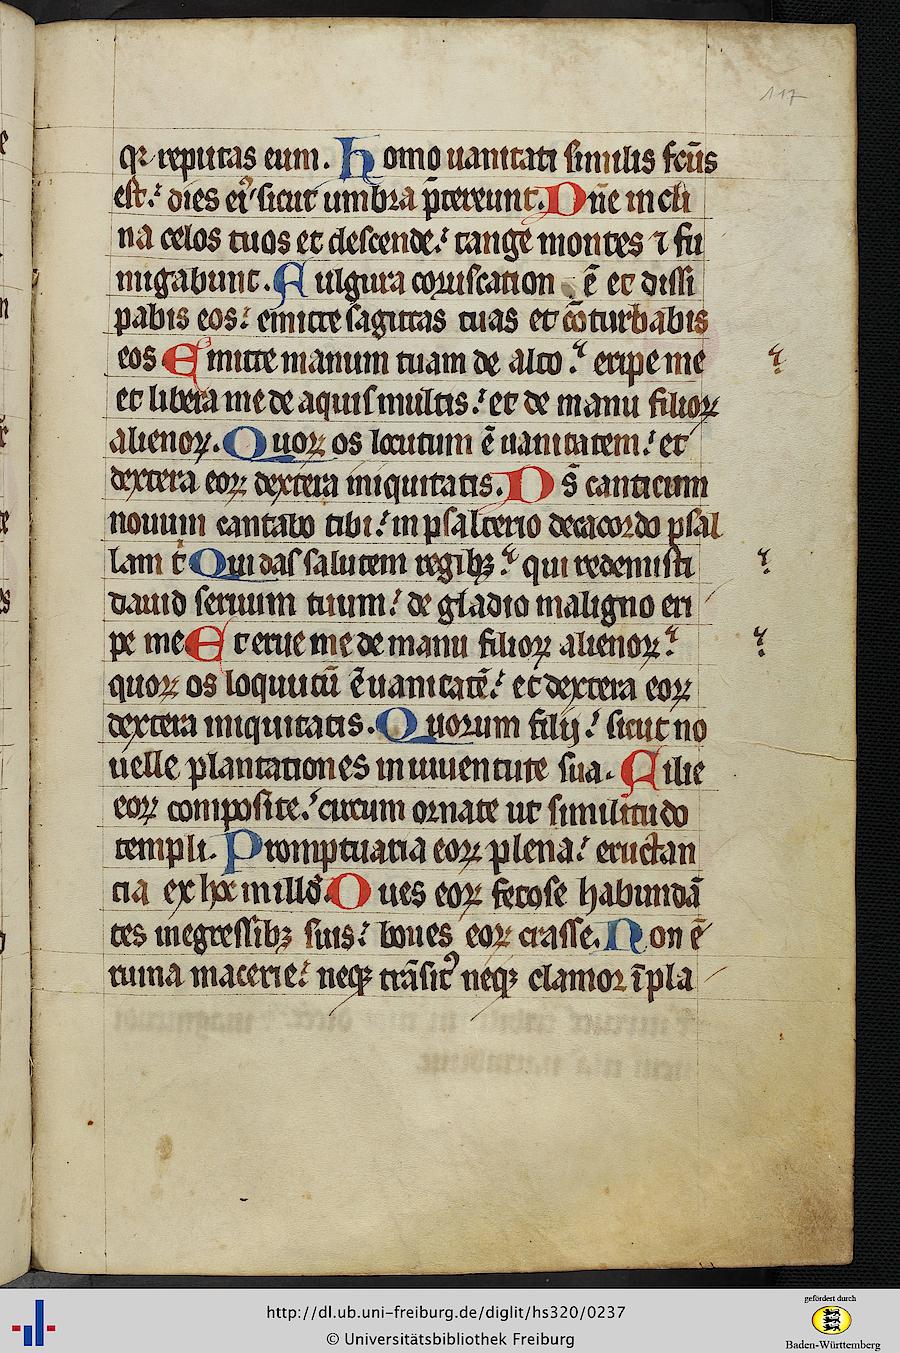 117
qꝛ reputas eum. Homo uanitati similis fcūs
est.᷎ dies eiꝰ sicut umbra p̄tereunt. Dn̄e incli
na celos tuos et descende.᷎ tange montes ⁊ fu
migabunt. Fulgura coruscation ē et dissi
pabis eos.᷎ emitte sagittas tuas et ꝯ̄turbabis
eos Emitte manum tuam de alto.᷎ eripe me
et libera me de aquis multis.᷎ et de manu filioꝝ
alienoꝝ. Quoꝝ os locutum ē uanitatem.᷎ et
dextera eoꝝ dextera iniquitatis. Ds̄ canticum
nouum cantabo tibi.᷎ in psalterio decacordo psal
lam t̄ Qui das salutem regibꝫ.᷎ qui redemisti
dauid seruum tuum.᷎ de gladio maligno eri
pe me Et erue me de manu filioꝝ alienoꝝ.᷎
quoꝝ os loquutū ē uanitatē.᷎ et dextera eoꝝ
dextera iniquitatis. Quorum filij.᷎ sicut no
uelle plantationes in iuuentute sua. Filie
eoꝝ composite.᷎ circum ornate ut similitudo
templi. Promptuaria eoꝝ plena.᷎ eructan
cia ex hoc in illđ. Oues eoꝝ fetose habundā
tes in egressibꝫ suis.᷎ boues eoꝝ crasse. Non ē
ruina macerie.᷎ neqꝫ trāsitꝰ neqꝫ clamor ī pla
http://dl.ub.uni-freiburg.de/diglit/hs320/0237
© Universitätsbibliothek Freiburg
gefördert durch
Baden-Württemberg